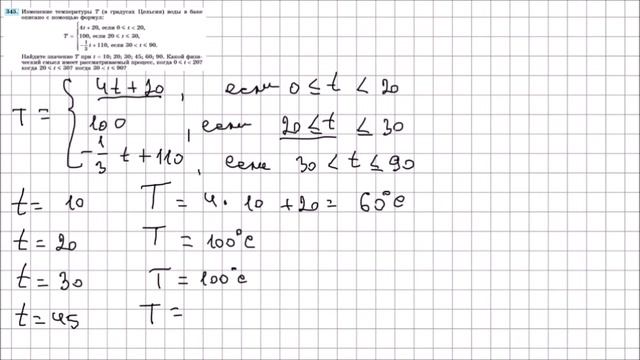 345. Изменение температуры T (в градусах Цельсия) воды в баке
описано с помощью формул:
4t + 20, если 0 ≤ t < 20,
T = { 100, если 20 ≤ t ≤ 30,
-1/3 t + 110, если 30 < t ≤ 90.
Найдите значение T при t = 10; 20; 30; 45; 60; 90. Какой физи-
ческий смысл имеет рассматриваемый процесс, когда 0 ≤ t < 20?
когда 20 ≤ t ≤ 30? когда 30 < t ≤ 90?
4t + 20, если 0 ≤ t < 20
T = { 100, если 20 ≤ t ≤ 30
-1/3 t + 110, если 30 < t ≤ 90
t = 10 T = 4 · 10 + 20 = 60°C
t = 20 T = 100°C
t = 30 T = 100°C
t = 45 T =